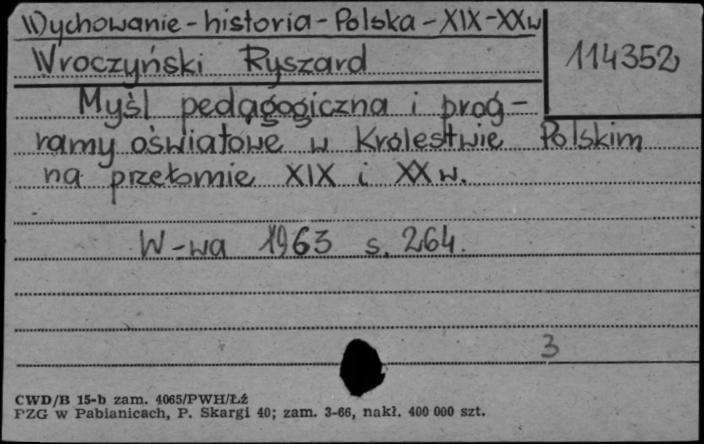 Wychowanie - historia - Polska - XIX-XXw
Wroczyński Ryszard
114352
Myśl pedagogiczna i prog-
ramy oświatowe w Królestwie Polskim
na przełomie XIX i XX w.
W-wa 1963 s. 264.
3
CWD/B 15-b zam. 4065/PWH/Łź
PZG w Pabianicach, P. Skargi 40; zam. 3-66, nakł. 400 000 szt.